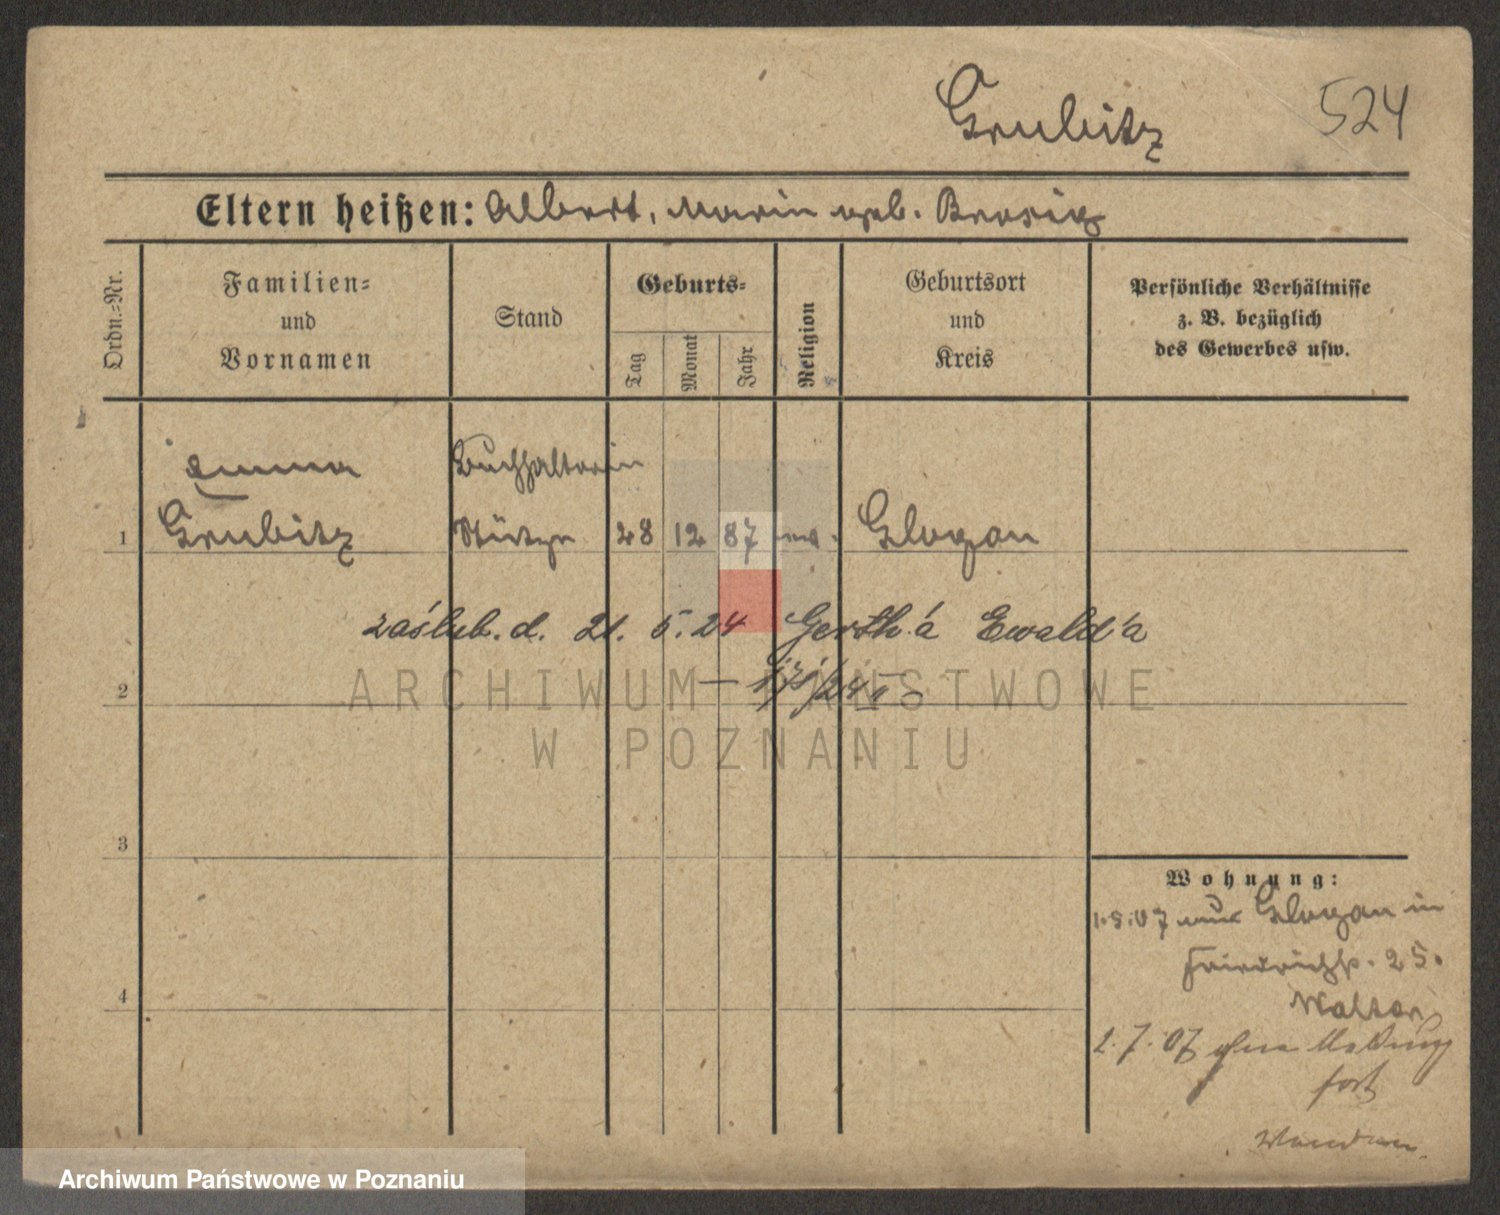 Grubitz 524
Eltern heißen: Albert, Marie geb. Brosig
Ordn.=Nr.
Familien=
und
Vornamen
Stand
Geburts=
Tag
Monat
Jahr
Religion
Geburtsort
und
Kreis
Persönliche Verhältnisse
z. B. bezüglich
des Gewerbes usw.
Emma Buchhalterin
1 Grubitz Stütze 28 12 87 ev. Glogau
zaślub. d. 21. 5. 24 Gerth'a Ewald'a
2
3
4
Wohnung:
1.5.07 aus Glogau in
Friedrichstr. 25.
Walter
2.7.07 ohne Meldung
fort
ARCHIWUM PAŃSTWOWE
W POZNANIU
Archiwum Państwowe w Poznaniu